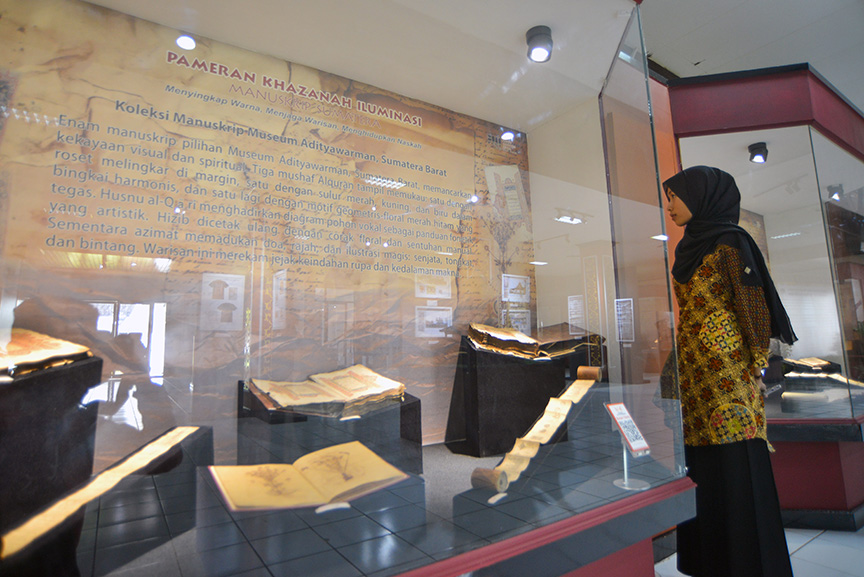 PAMERAN KHAZANAH ILUMINASI
MANUSKRIP
Menyingkap Warna, Menjaga Warisan, Menghidupkan Naskah
Koleksi Manuskrip Museum Adityawarman, Sumatera Barat
Enam manuskrip pilihan Museum Adityawarman, Sumatera Barat, memancarkan
kekayaan visual dan spiritual. Tiga mushaf Alquran tampil memukau satu dengan
roset melingkar di margin, satu dengan sulur merah, kuning, dan biru dalam
bingkai harmonis, dan satu lagi dengan motif geometris floral merah hitam yang
tegas. Husnu al-Qia'ri menghadirkan diagram pohon vokal sebagai panduan
yang artistik. Hizib dicetak ulang dengan corak floral dan sentuhan manual.
Sementara azimat memadukan doa, rajah, dan ilustrasi magis: senjata, tongkat,
dan bintang. Warisan ini merekam jejak keindahan rupa dan kedalaman makna.